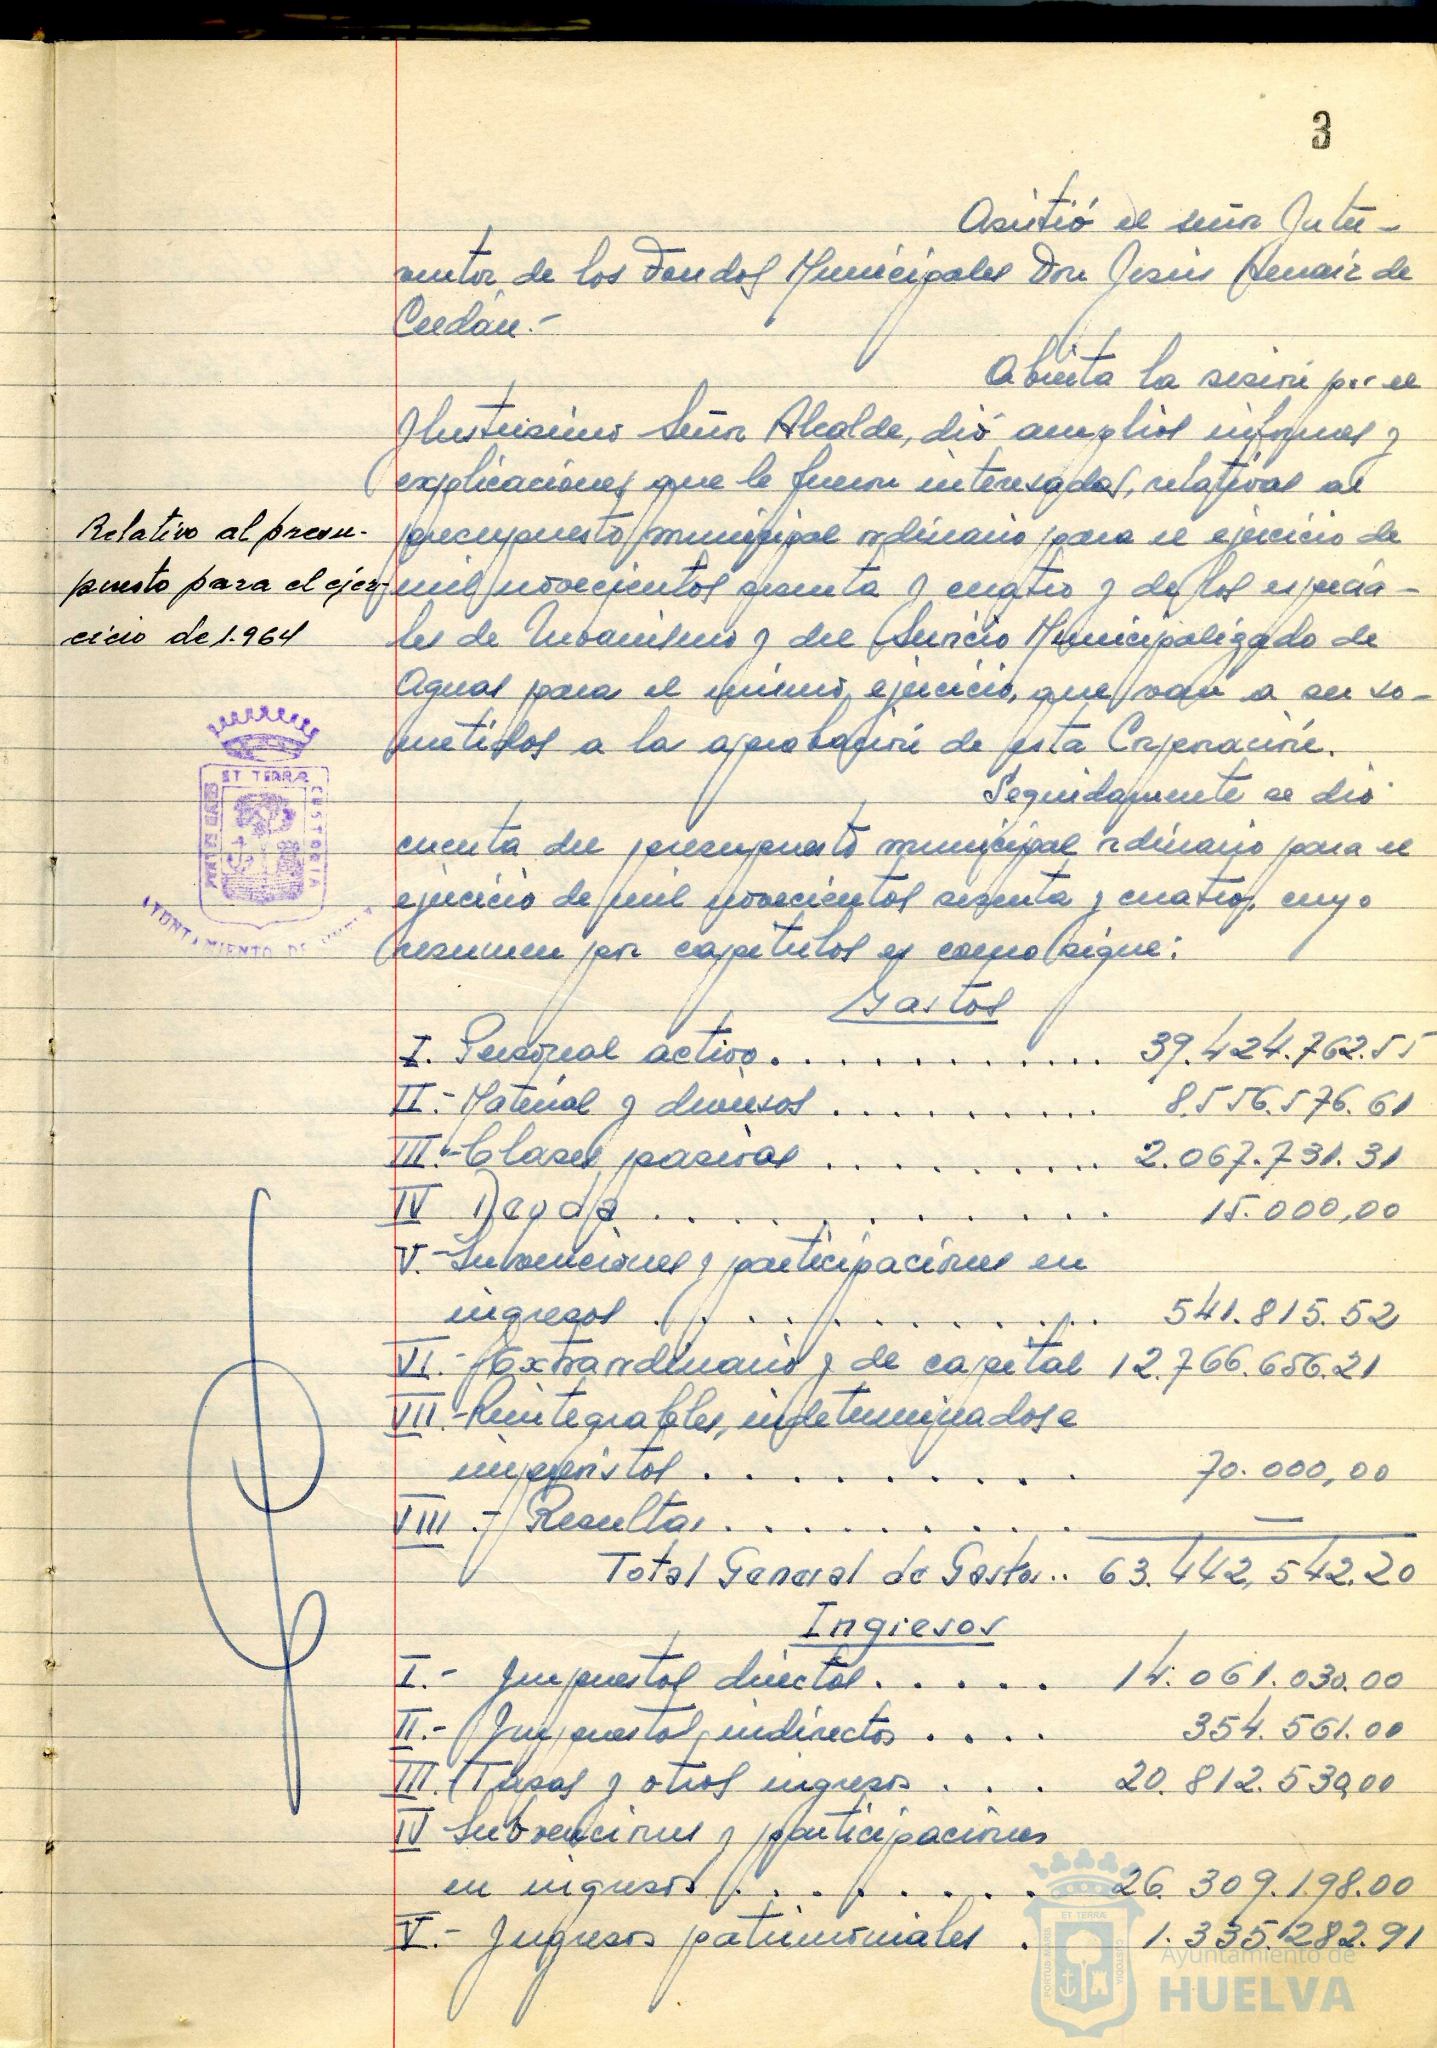 3
Asistió el señor Inter-
ventor de los Fondos Municipales Don Jesús de
Abierta la sesión por el
Ilustrísimo Señor Alcalde, dió amplios informes y
explicaciones que le fueron interesadas, relativas al
presupuesto municipal ordinario para el ejercicio de
mil novecientos sesenta y cuatro y de los especia-
les de Urbanismo y del Servicio Municipalizado de
Aguas para el mismo ejercicio, que van a ser so-
metidos a la aprobación de esta Corporación.
Relativo al presu-
puesto para el ejer-
cicio de 1.964
Seguidamente se dió
cuenta del presupuesto municipal ordinario para el
ejercicio de mil novecientos sesenta y cuatro, cuyo
resumen por capítulos es como sigue:
ET TERRÆ
CUSTODIA
AYUNTAMIENTO DE HUELVA
Gastos
I. Personal activo. . . . . . . . . . . . 39.424.762.55
II.- Material y diversos . . . . . . . . . . 8.556.576.61
III.- Clases pasivas . . . . . . . . . . 2.067.731.31
IV Deuda . . . . . . . . . . . 15.000,00
V.- Subvenciones y participaciones en
ingresos . . . . . . . . . . . 541.815.52
VI.- Extraordinario y de capital 12.766.656.21
VII.- Reintegrables, indeterminados e
imprevistos . . . . . . . . . . 70.000,00
VIII.- Resultas . . . . . . . . . . —
Total General de Gastos.. 63.442,542.20
Ingresos
I.- Impuestos directos. . . . . 14.061.030.00
II.- Impuestos indirectos . . . . 354.561.00
III. Tasas y otros ingresos . . . 20.812.530,00
IV Subvenciones y participaciones
en ingresos . . . . . . . 26.309.198.00
V.- Ingresos patrimoniales . 1.335.282.91
PORTUS MARIS
ET TERRÆ
CUSTODIA
Ayuntamiento de
HUELVA